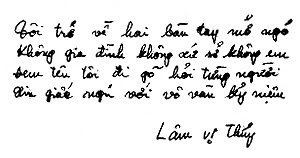 Tôi trở về hai bàn tay mở ngó
không gia đình không xứ sở không em
đem tên tôi đi gõ hỏi từng người
xin giấc ngủ với vô vàn kỷ niệm
Lâm vị Thủy